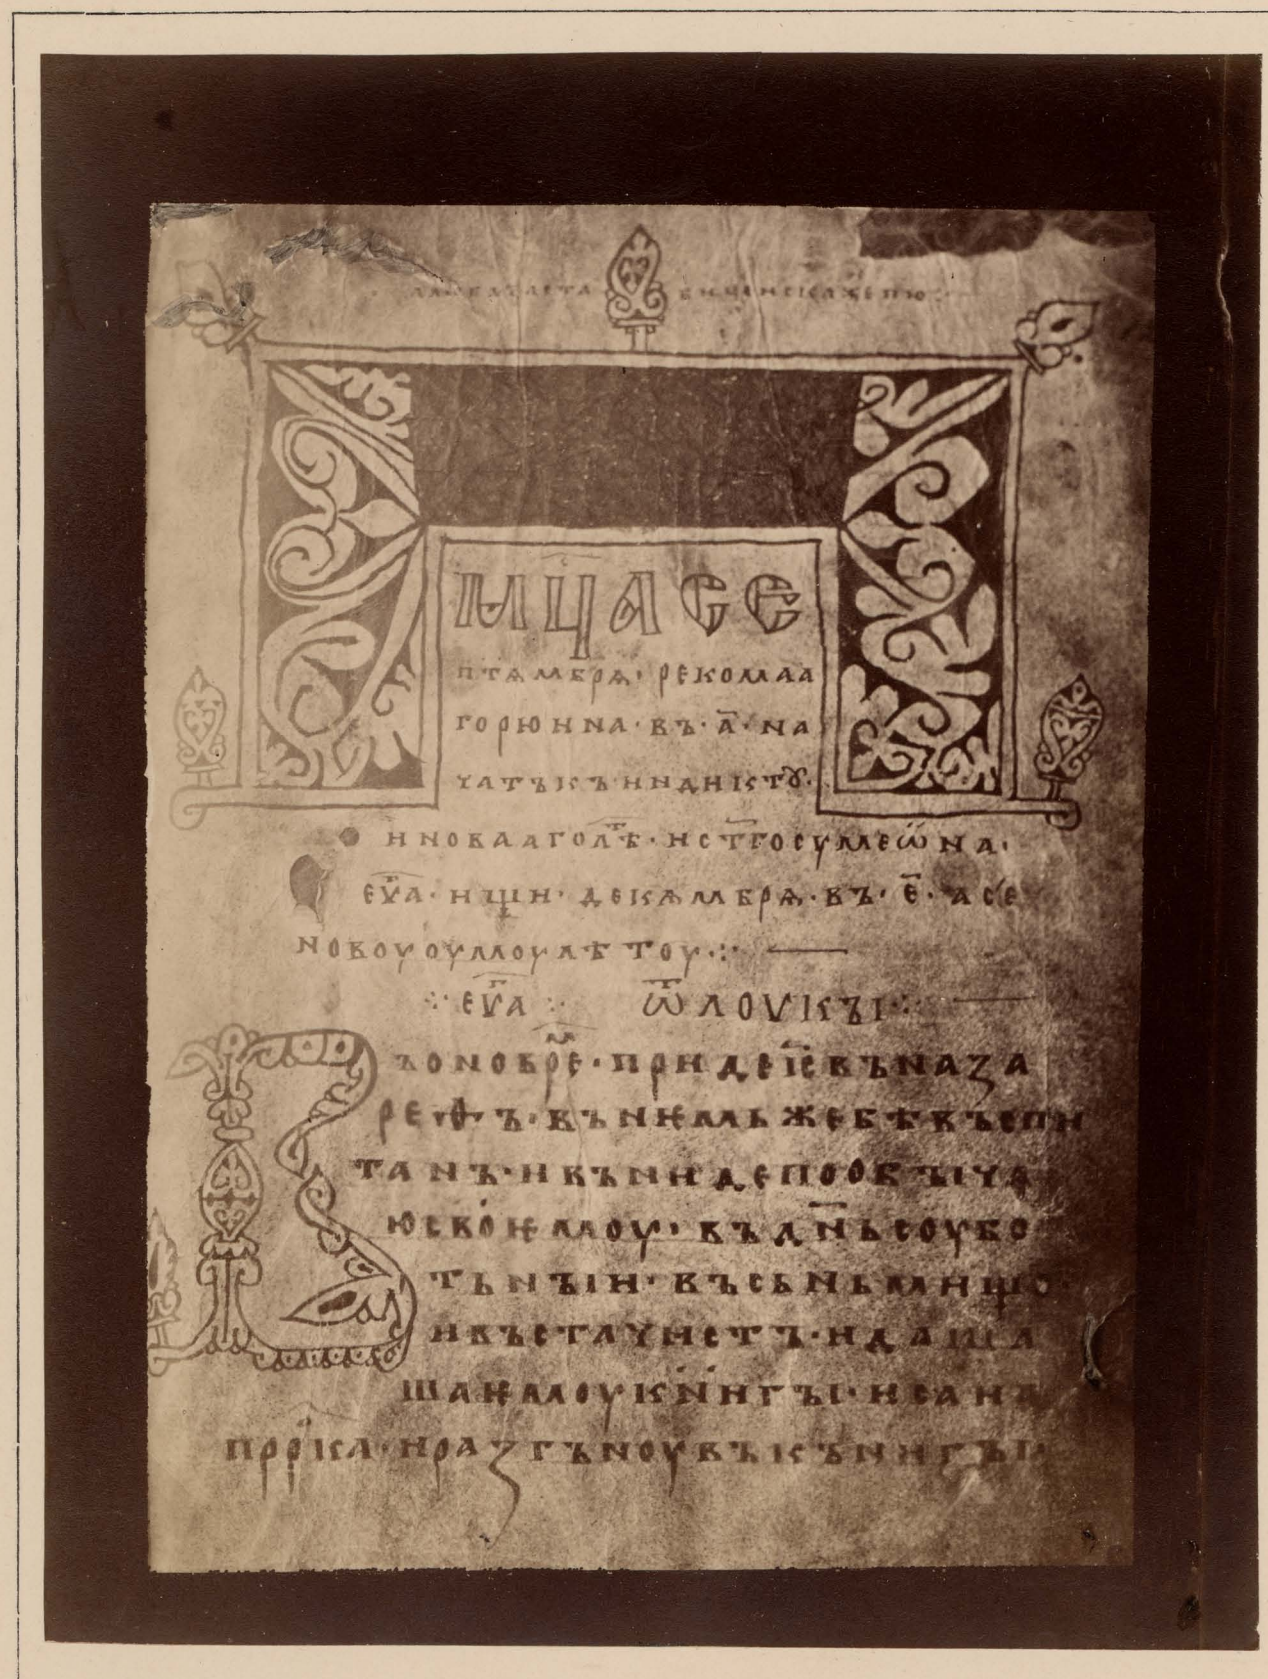 м҃ца се
птѧмбрѧ · рекомаа
горюнна · въ · а҃ · на
чатъкъ индикту ·
и новааго лѣт · и ст҃го сумеѡна ·
еу҃а · ищи · декѧмбрѧ · въ · е҃ · а се
новоуоумоу лѣтоу ·:·
·:· еу҃а ·:· ѿ лоукꙑ ·:·
Въ оно врѣм҃е · приде і҃с въ наза
реѳъ · въ нѥмьже бѣ въспи
танъ · и въниде по обꙑча
ю своѥмоу · въ дн҃ь соубо
тьнꙑи · въ сьньмищо
и въста чистъ · и даша
ша ѥмоу книгꙑ · исаи
пр҃рка · и разгъноувъ кънигꙑ ·